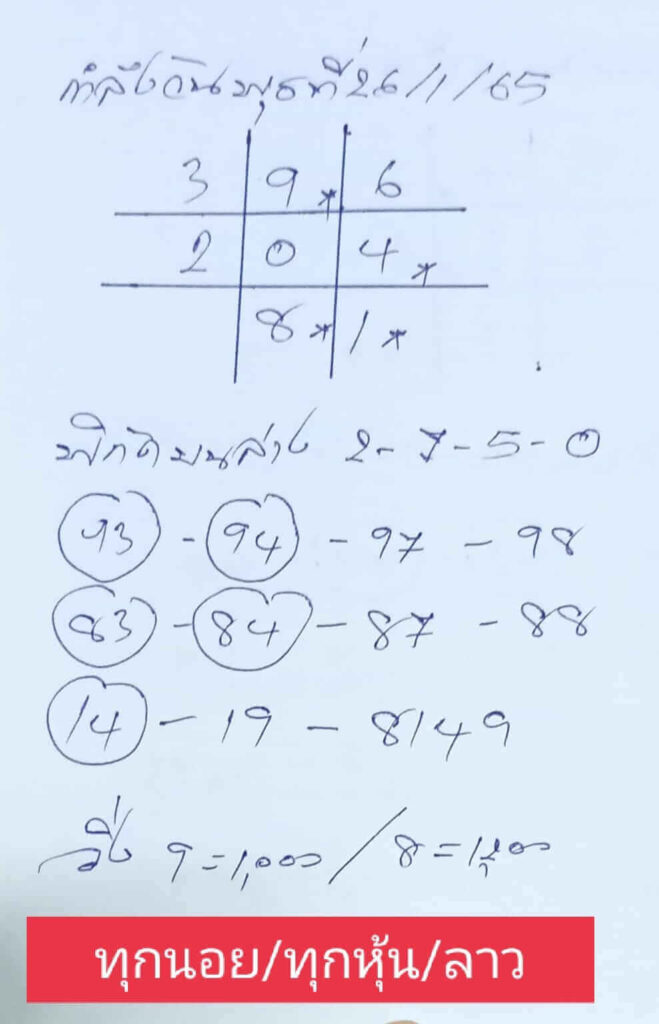 กำลังวันพุธที่ 26/1/65
3 9* 6
2 0 4*
8* 1*
พิกัดบนล่าง 2-7-5-0
93 - 94 - 97 - 98
83 - 84 - 87 - 88
14 - 19 - 8149
วิ่ง 9=1,000 / 8=1,500
ทุกนอย/ทุกหุ้น/ลาว